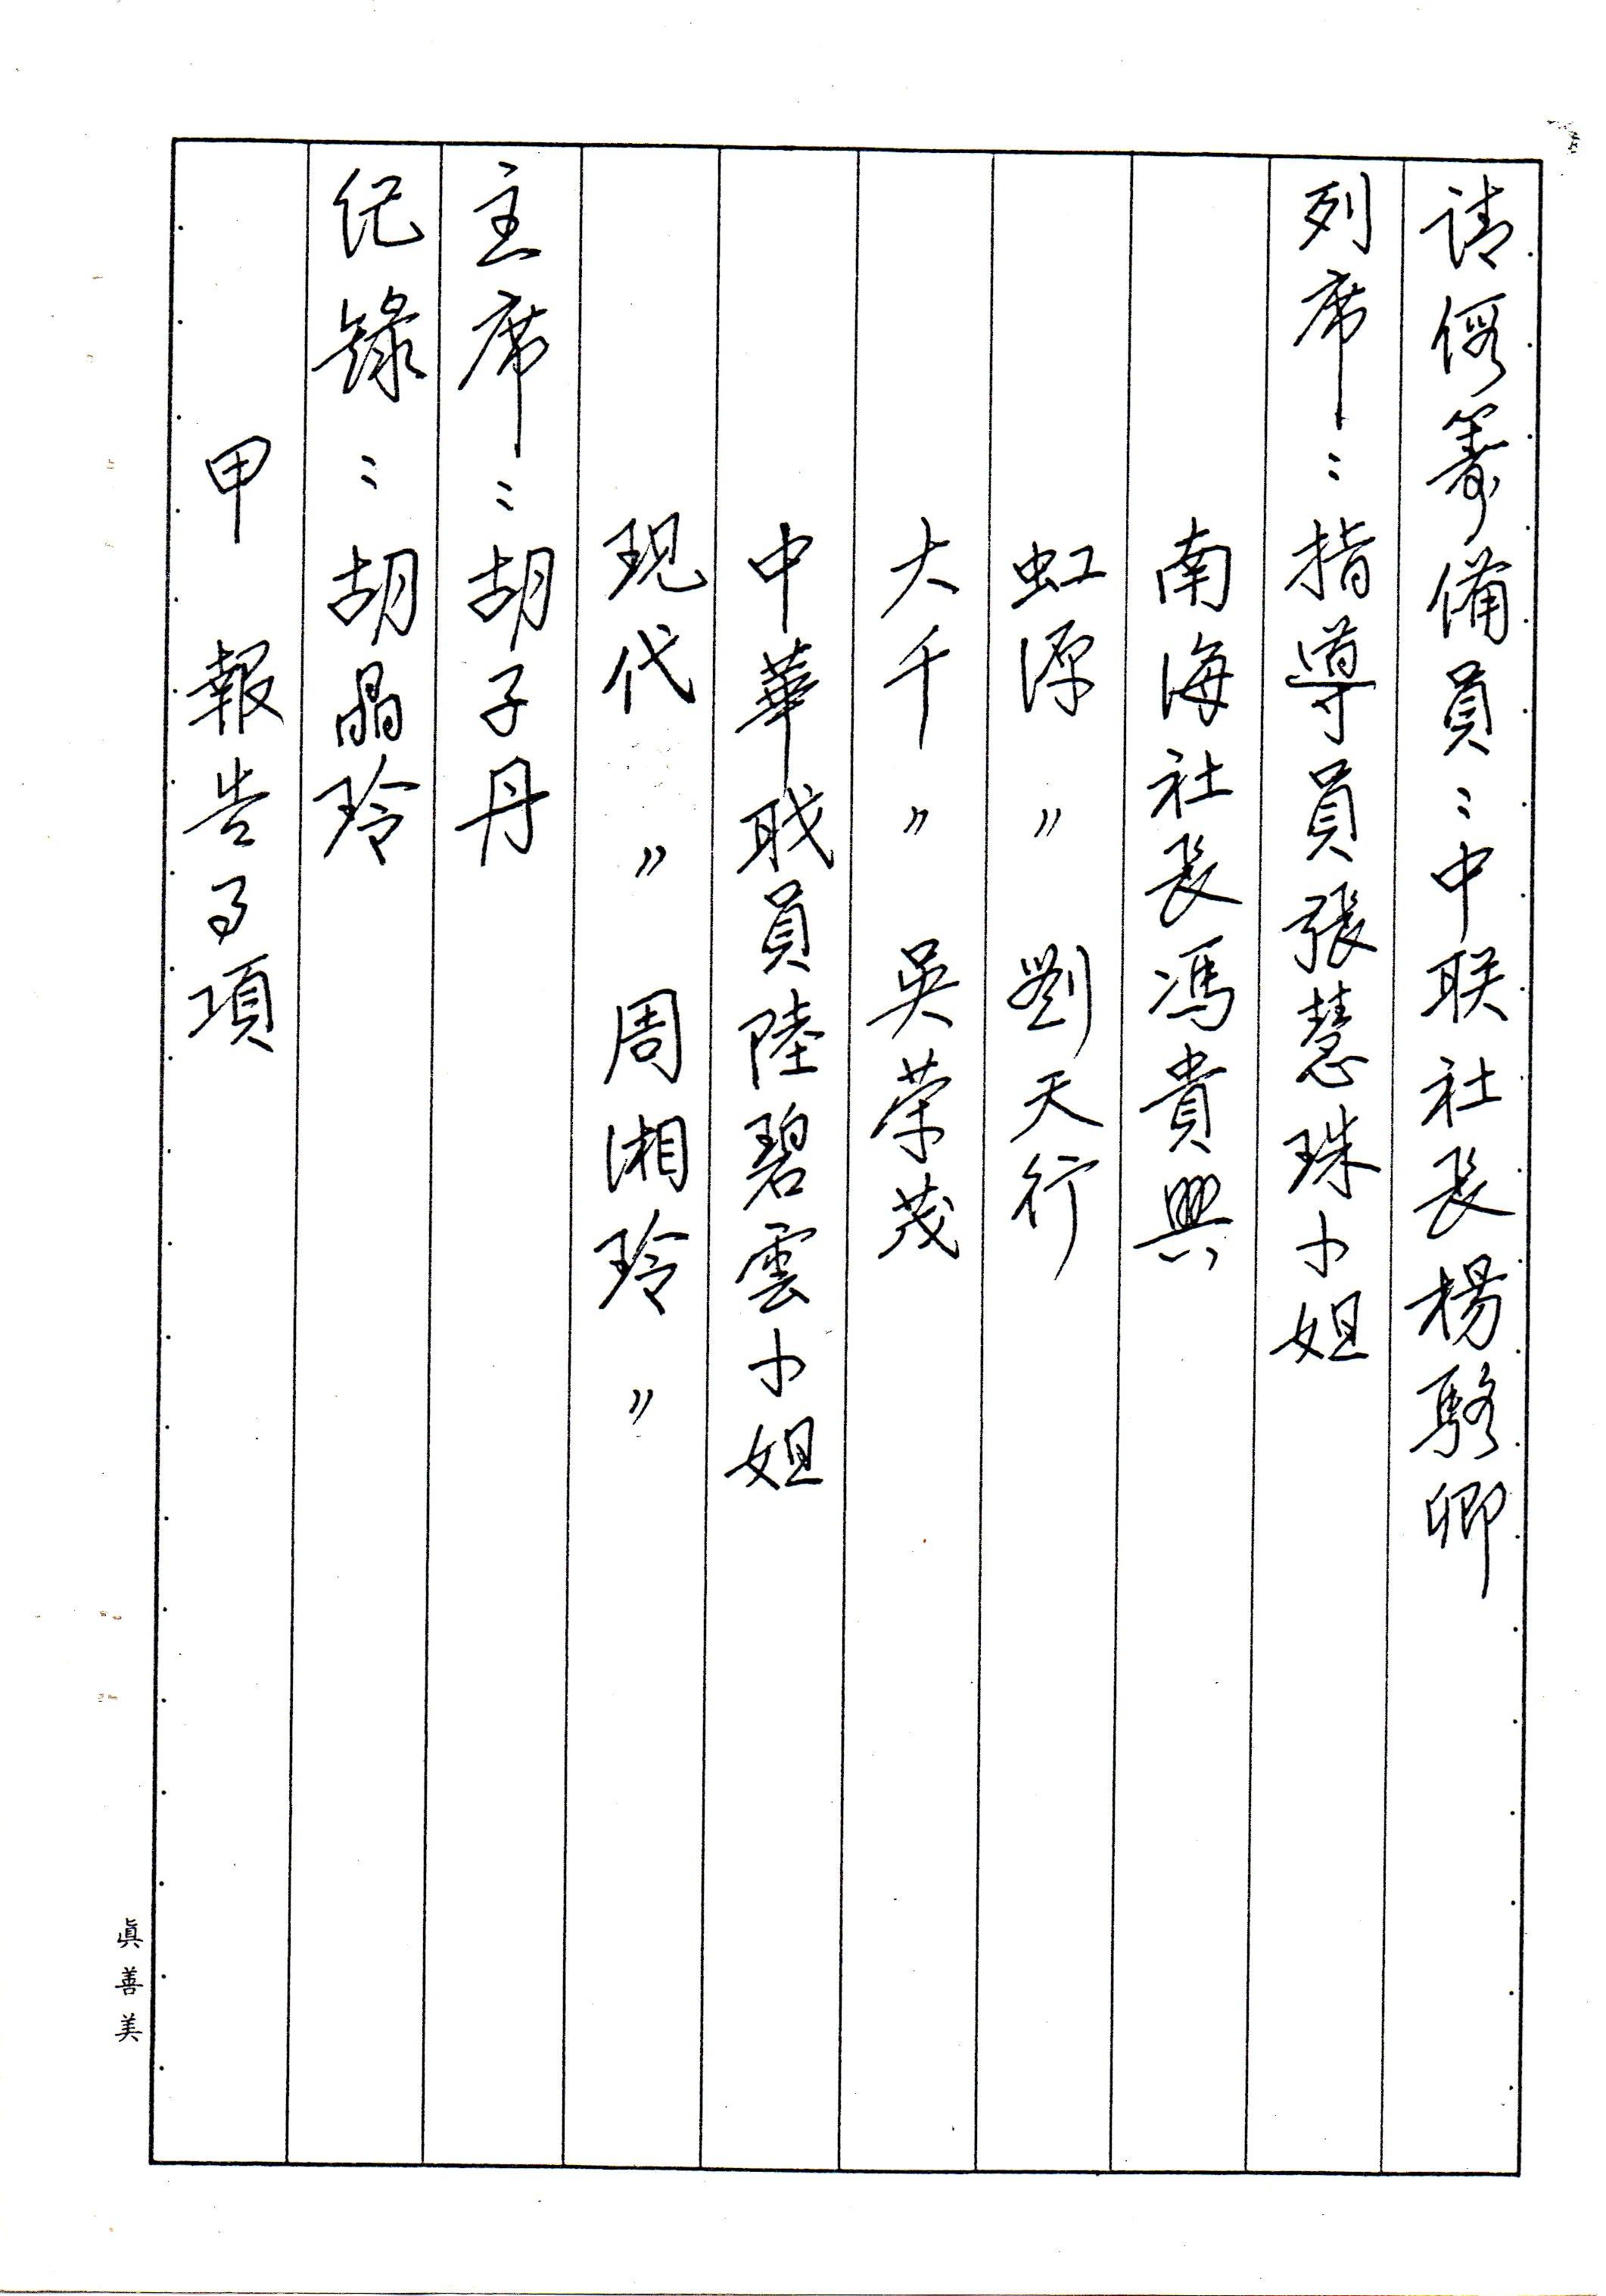 请假筹備員：中联社長楊駱卿
列席：指導員張慧珠小姐
南海社長馮貴興
虹源〃劉天行
大千〃吳荣茂
中華职員陸碧雲小姐
現代〃周湘玲〃
主席：胡子丹
纪錄：胡晶玲
甲 報告事項
眞善美